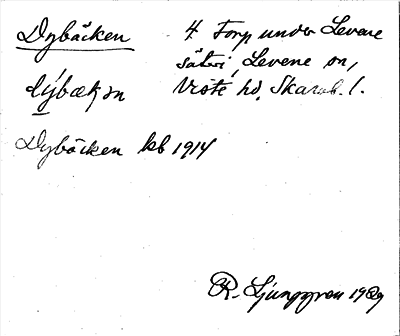 Dybäcken 4 Torp under Levene
säteri, Levene sn,
dýbækən Viste hd, Skarab. l.
Dybäcken kb 1914
R. Ljunggren 1929